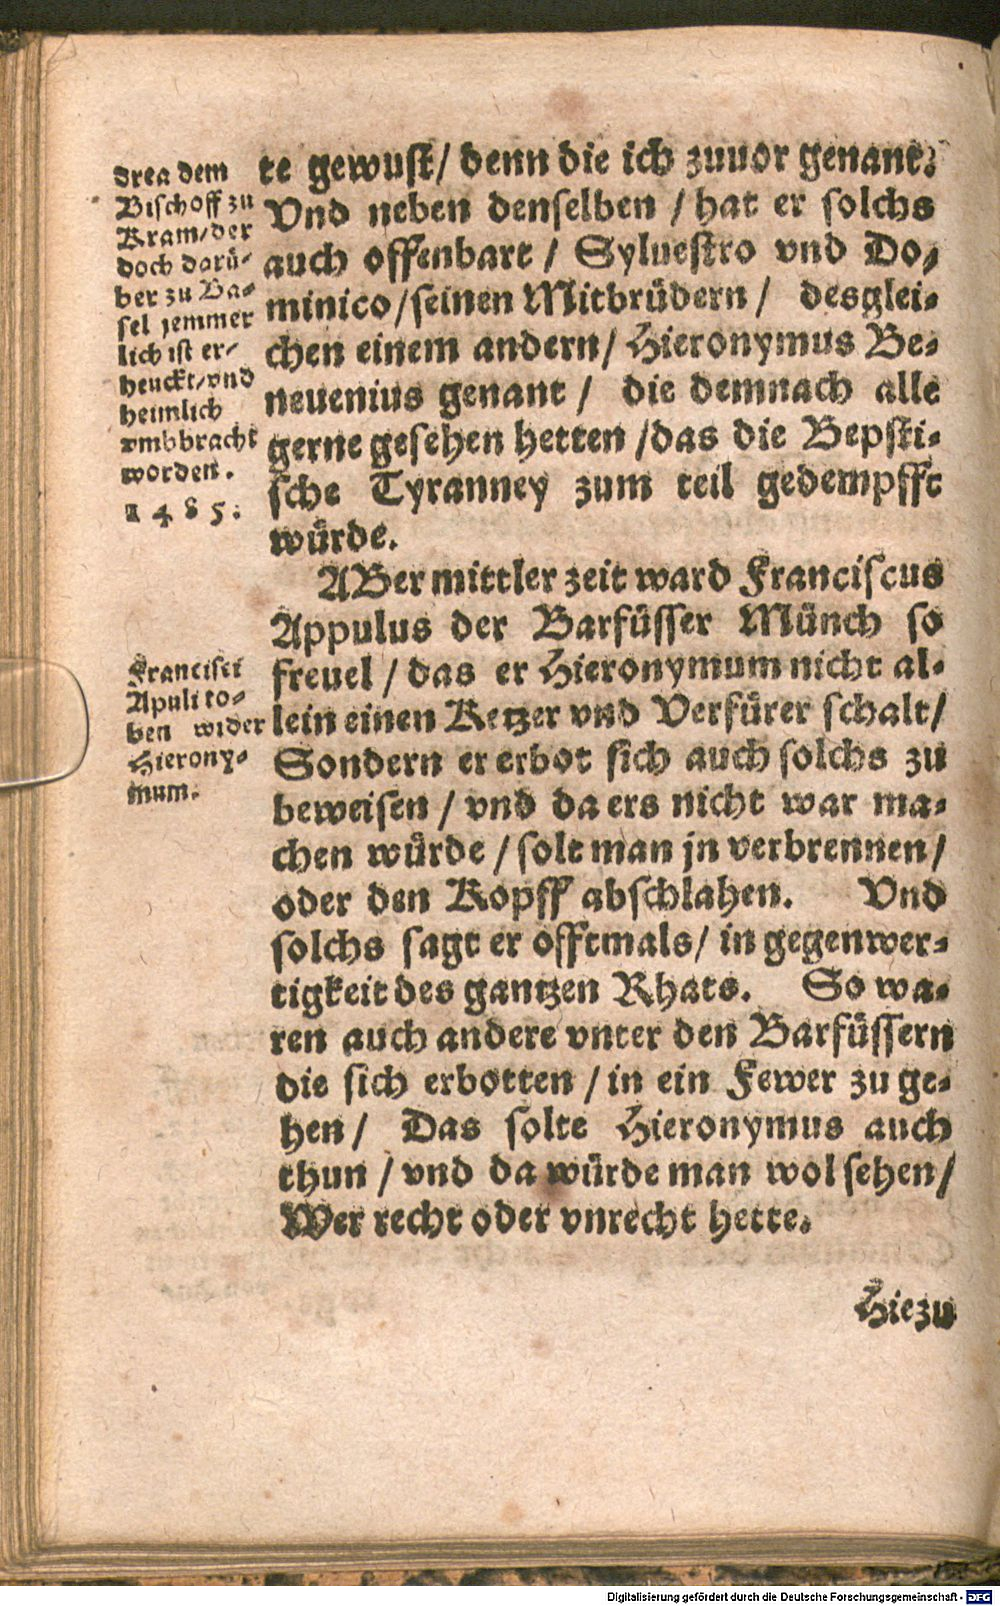 drea dem
Bischoff zu
Kram/der
doch darü-
ber zu Ba-
sel jemmer
lich ist er-
heuckt/vnd
heimlich
vmbbracht
worden.
1485.
te gewust/ denn die ich zuuor genant.
Vnd neben denselben / hat er solchs
auch offenbart / Syluestro vnd Do-
minico/seinen Mitbrüdern / desglei-
chen einem andern/ Hieronymus Be-
neuenius genant / die demnach alle
gerne gesehen hetten /das die Bepsti-
sche Tyranney zum teil gedempfft
würde.
ABer mittler zeit ward Franciscus
Appulus der Barfüsser Münch so
freuel / das er Hieronymum nicht al-
lein einen Ketzer vnd Verfürer schalt/
Sondern er erbot sich auch solchs zu
beweisen / vnd da ers nicht war ma-
chen würde / solt man jn verbrennen/
oder den Kopff abschlahen. Vnd
solchs sagt er offtmals/ in gegenwer-
tigkeit des gantzen Rhats. So wa-
ren auch andere vnter den Barfüssern
die sich erbotten / in ein Fewer zu ge-
hen / Das solte Hieronymus auch
thun / vnd da würde man wol sehen/
Wer recht oder vnrecht hette.
Francisci
Apuli to-
ben wider
Hierony-
mum.
Hiezu
Digitalisierung gefördert durch die Deutsche Forschungsgemeinschaft - DFG